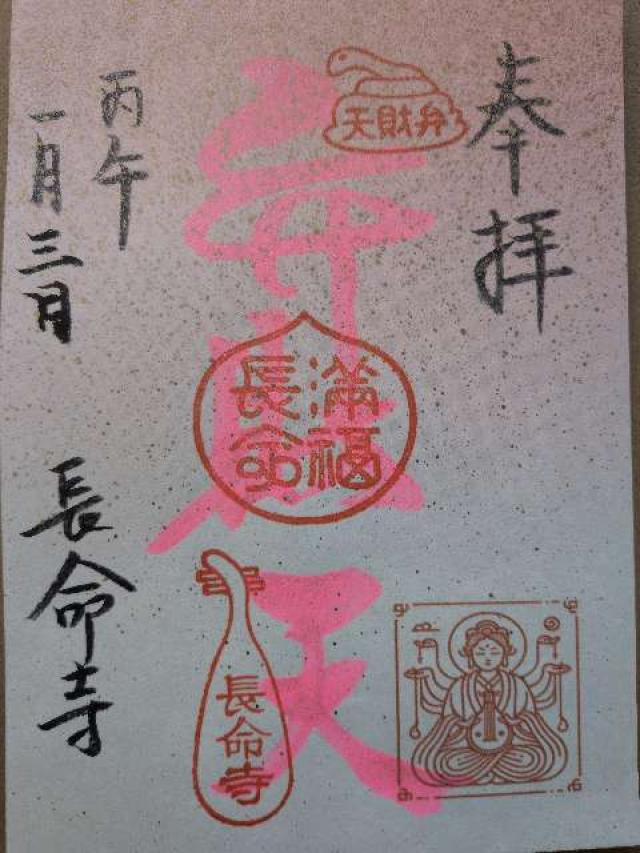 奉拝
弁財天
天財弁
満福
長命
長命寺
丙午
一月三日
長命寺